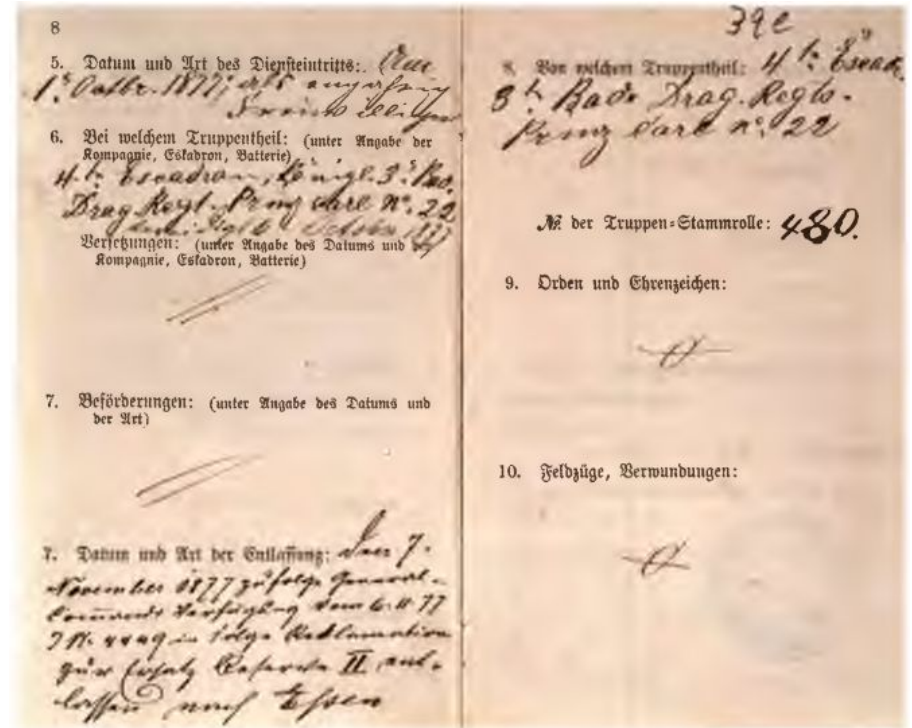 8
5. Datum und Art des Diensteintritts: Am
1t Octbr. 1877, als einjährig
Freiwilliger
6. Bei welchem Truppentheil: (unter Angabe der
Kompagnie, Eskadron, Batterie)
4. te Escadron, Königl. 3t Bad.
Drag. Regt. Prinz Carl No. 22
October 1877
Versetzungen: (unter Angabe des Datums und der
Kompagnie, Eskadron, Batterie)
7. Beförderungen: (unter Angabe des Datums und
der Art)
7. Datum und Art der Entlassung: Den 7.
November 1877 zufolge General-
Commando Verfügung vom 6.11.77
J.N. 4449 in Folge Reklamation
zur Ersatz Reserve II ent-
lassen nach Essen
39e
8. Von welchem Truppentheil: 4 te Escadr.
3t Bad. Drag. Regts.
Prinz Carl No. 22
№ der Truppen-Stammrolle: 480.
9. Orden und Ehrenzeichen:
10. Feldzüge, Verwundungen: